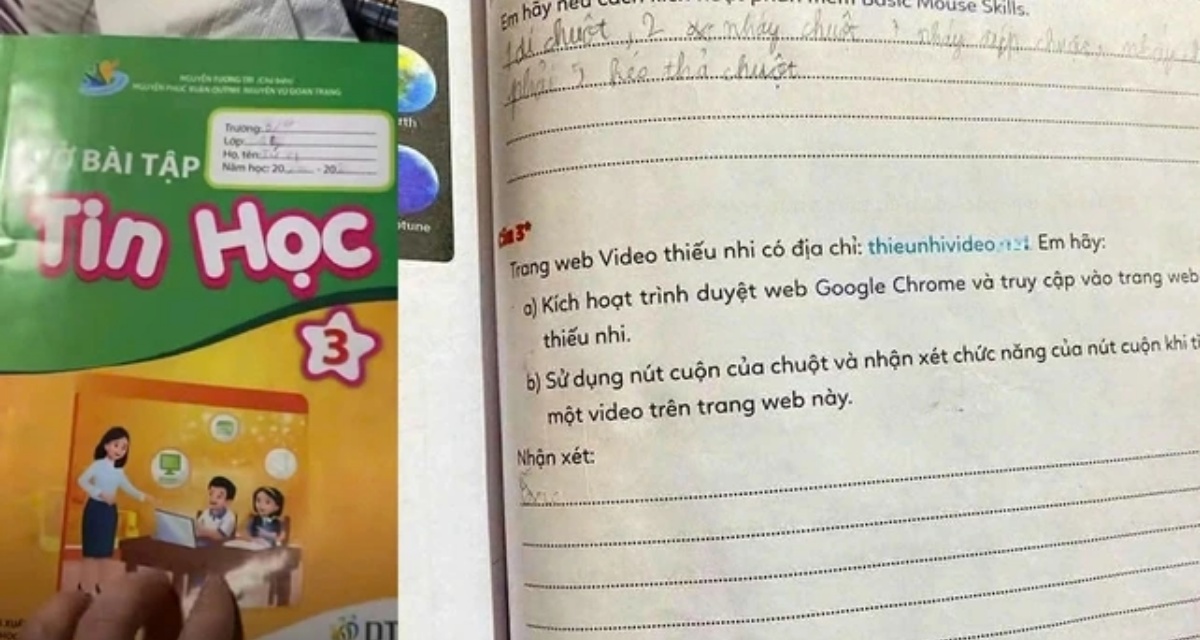 NGUYỄN TƯƠNG TRI (Chủ biên)
NGUYỄN PHÚC XUÂN QUỲNH - NGUYỄN VŨ ĐOAN TRANG
Trường:
Lớp:
Họ, tên:
Năm học: 20 - 20
BÀI TẬP
Tin Học
3
rth
ptune
Em hãy nêu Basic Mouse Skills.
chuột, 2 nháy chuột nháy
phải 5 kéo thả chuột
3*
Trang web Video thiếu nhi có địa chỉ: thieunhivideo Em hãy:
a) Kích hoạt trình duyệt web Google Chrome và truy cập vào trang web
thiếu nhi.
b) Sử dụng nút cuộn của chuột và nhận xét chức năng của nút cuộn khi
một video trên trang web này.
Nhận xét: